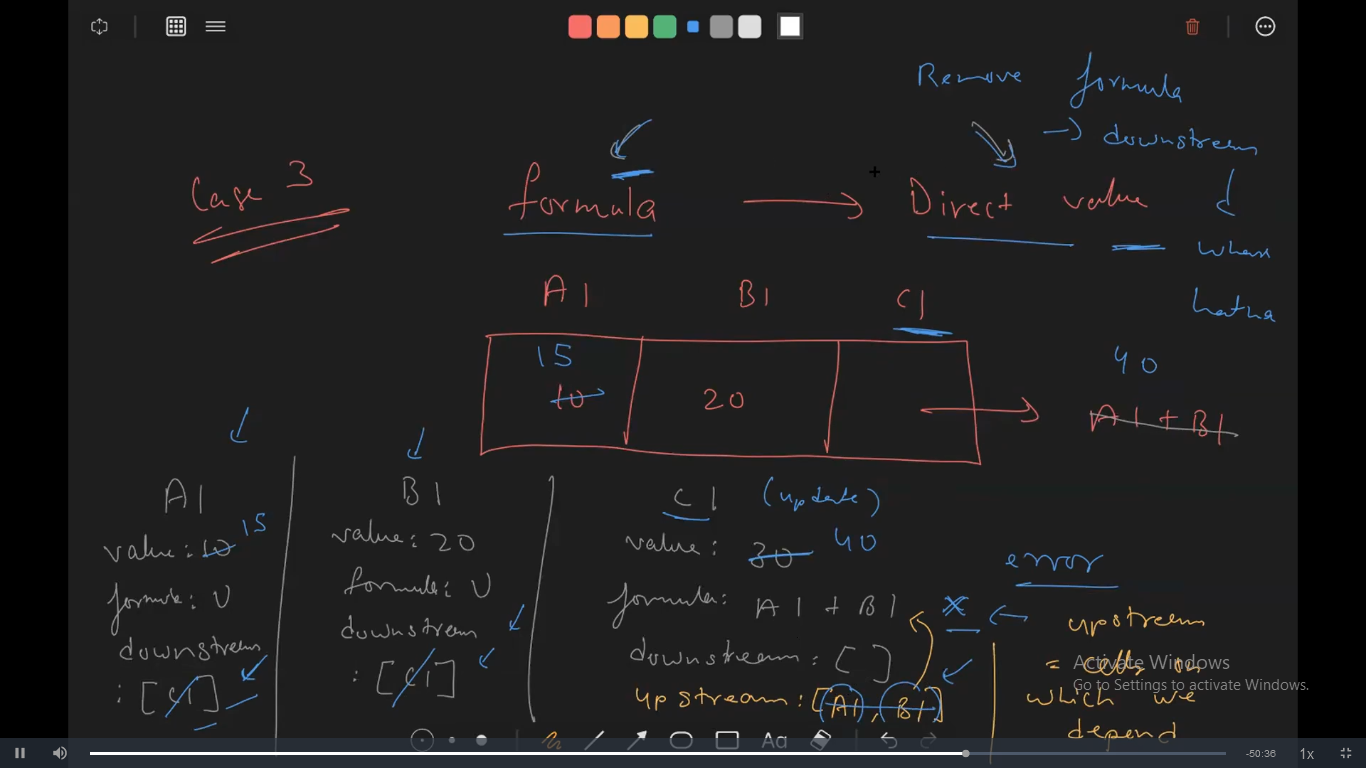 Remove formula
→ downstream
Case 3
formula → Direct value
whose
hatna
A1 B1 C1
15
10 20
40
A1 + B1
A1
value: 10 15
formula: U
downstream
: [C1]
B1
value: 20
formula: U
downstream
: [C1]
C1 (update)
value: 30 40
formula: A1 + B1
downstream: [ ]
upstream: [A1, B1]
error
upstream
= cells on
which we
depend
Activate Windows
Go to Settings to activate Windows.
Aa
-50:36
1x